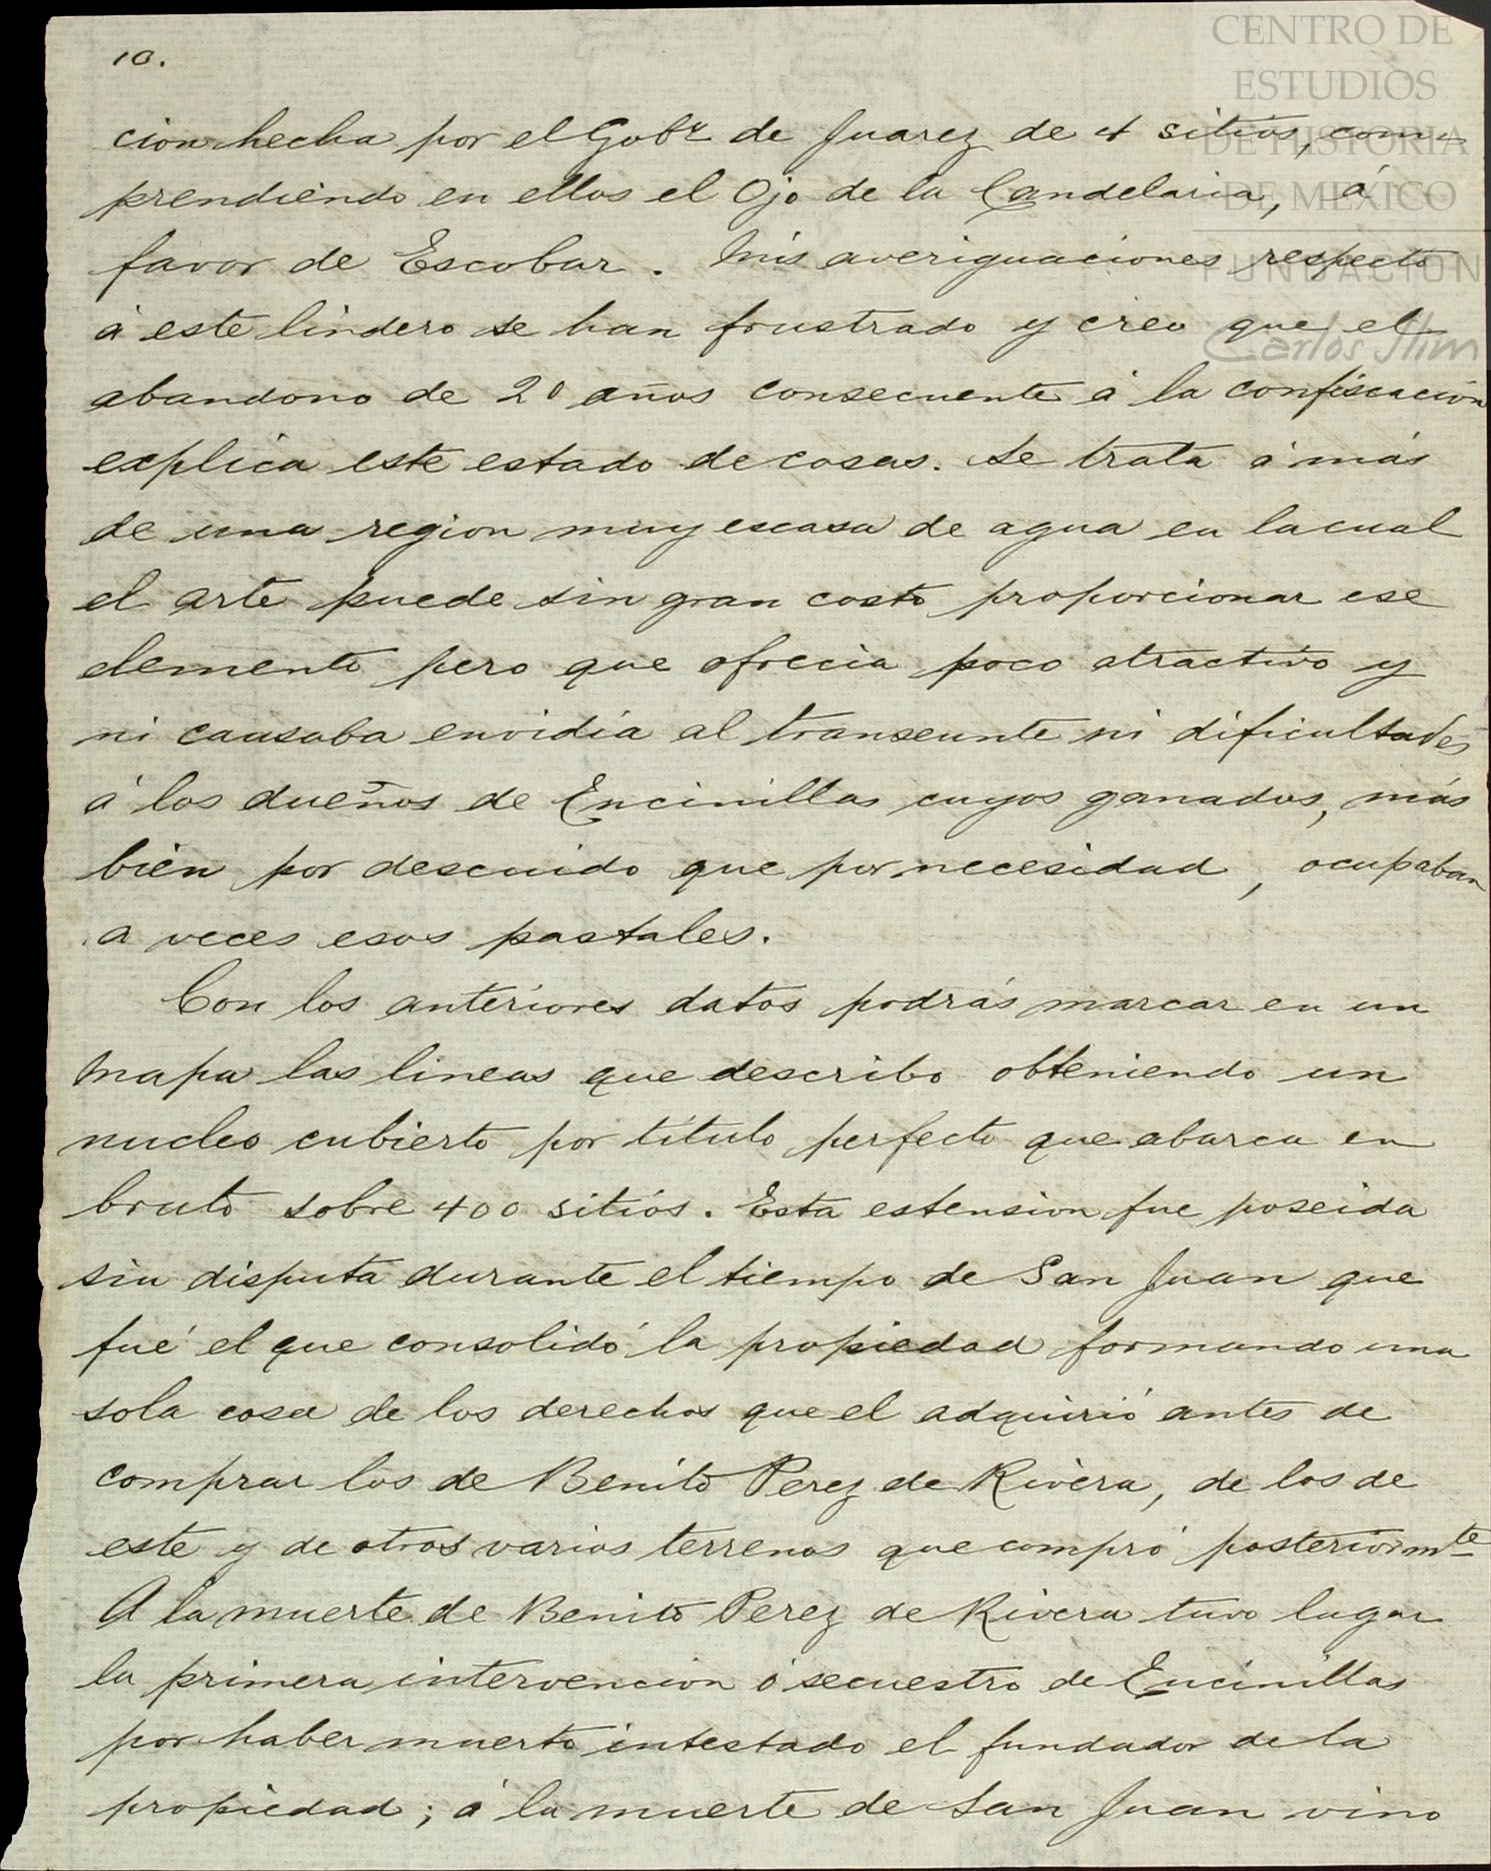 10.
CENTRO DE
ESTUDIOS
DE HISTORIA
DE MEXICO
FUNDACION
Carlos Slim
cion hecha por el Gobr de Juarez de 4 sitios, com-
prendiendo en ellos el Ojo de la Candelaria, á
favor de Escobar. Mis averiguaciones respecto
á este lindero se han frustrado y creo que el
abandono de 20 años consecuente á la confiscacion
explica este estado de cosas. Se trata á más
de una region muy escasa de agua en la cual
el arte puede sin gran costo proporcionar ese
elemento pero que ofrecia poco atractivo y
ni causaba envidia al transeunte ni dificultades
á los dueños de Encinillas cuyos ganados, más
bien por descuido que por necesidad, ocupaban
a veces esos pastales.
Con los anteriores datos podrás marcar en un
mapa las lineas que describo obteniendo un
nucleo cubierto por título perfecto que abarca en
bruto sobre 400 sitios. Esta estension fue poseida
sin disputa durante el tiempo de San Juan que
fué el que consolidó la propiedad formando una
sola cosa de los derechos que el adquirió antes de
comprar los de Benito Perez de Rivera, de los de
este y de otros varios terrenos que compró posteriormte
A la muerte de Benito Perez de Rivera tuvo lugar
la primera intervencion ó secuestro de Encinillas
por haber muerto intestado el fundador de la
propiedad; á la muerte de San Juan vino